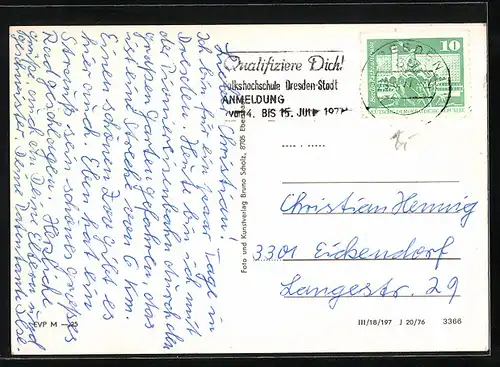 Lieber Christian!
Ich bin für ein paar Tage in
Dresden. Heute bin ich mit
der Pioniereisenbahn durch den
großen Garten gefahren, das
ist eine Strecke von 6 km.
Einen schönen Zoo gibt es
hier auch. Eben hat ein
Strauß ein schönes großes
Rad geschlagen. Herzliche
Grüße auch an Deine Eltern und
Deine Patentante Ilse.
EVP M —,25
Foto und Kunstverlag Bruno Scholz, 8705 Ebersbach
Qualifiziere Dich!
Volkshochschule Dresden-Stadt
ANMELDUNG
vom 4. BIS 15. JULI 1977
DRESDEN
10
DEUTSCHE DEMOKRATISCHE REPUBLIK
Christian Hennig
3301 Eickendorf
Langestr. 29
III/18/197 J 20/76 3366